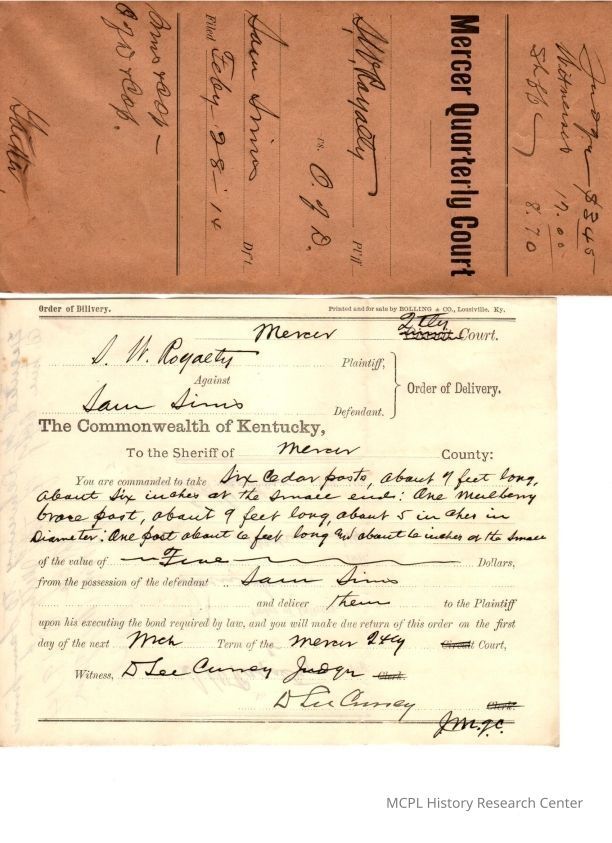 Judge $3.45
Witnesses 17.00
Shff 8.70
Mercer Quarterly Court
S.W. Royalty
Pl'ff
vs. O. of D.
Sam Sims
Df't.
Filed Feby 28 14
O of D & Cop.
Order of Dilivery.
Printed and for sale by BOLLING & CO., Lousiville, Ky.
Mercer Qtly Circuit Court.
S. W. Royalty Plaintiff,
Against
Order of Delivery.
Sam Sims Defendant.
The Commonwealth of Kentucky,
To the Sheriff of Mercer County:
You are commanded to take Six Cedar posts, about 7 feet long,
about Six inches at the small end: One Mulberry
brace post, about 9 feet long, about 5 inches in
Diameter: One post about 6 feet long and about 6 inches at the small
of the value of Five Dollars,
from the possession of the defendant Sam Sims
and deliver them to the Plaintiff
upon his executing the bond required by law, and you will make due return of this order on the first
day of the next Mch Term of the Mercer Qtly Circuit Court,
Witness, D Lee Currey Judge Clerk.
D Lee Currey Clerk.
J.M.Q.C.
MCPL History Research Center